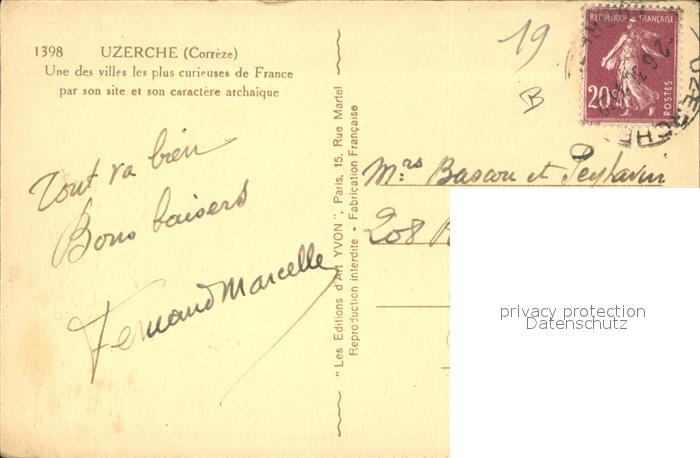 1398 UZERCHE (Corrèze)
Une des villes les plus curieuses de France
par son site et son caractère archaïque
Tout va bien
Bons baisers
Fernand Marcelle
"Les Editions d'Art YVON", Paris, 15, Rue Martel
Reproduction interdite - Fabrication Française
19
B
REPUBLIQUE FRANÇAISE
20c
POSTES
UZERCHE
Mrs Bascou et Peytavin
208
privacy protection
Datenschutz